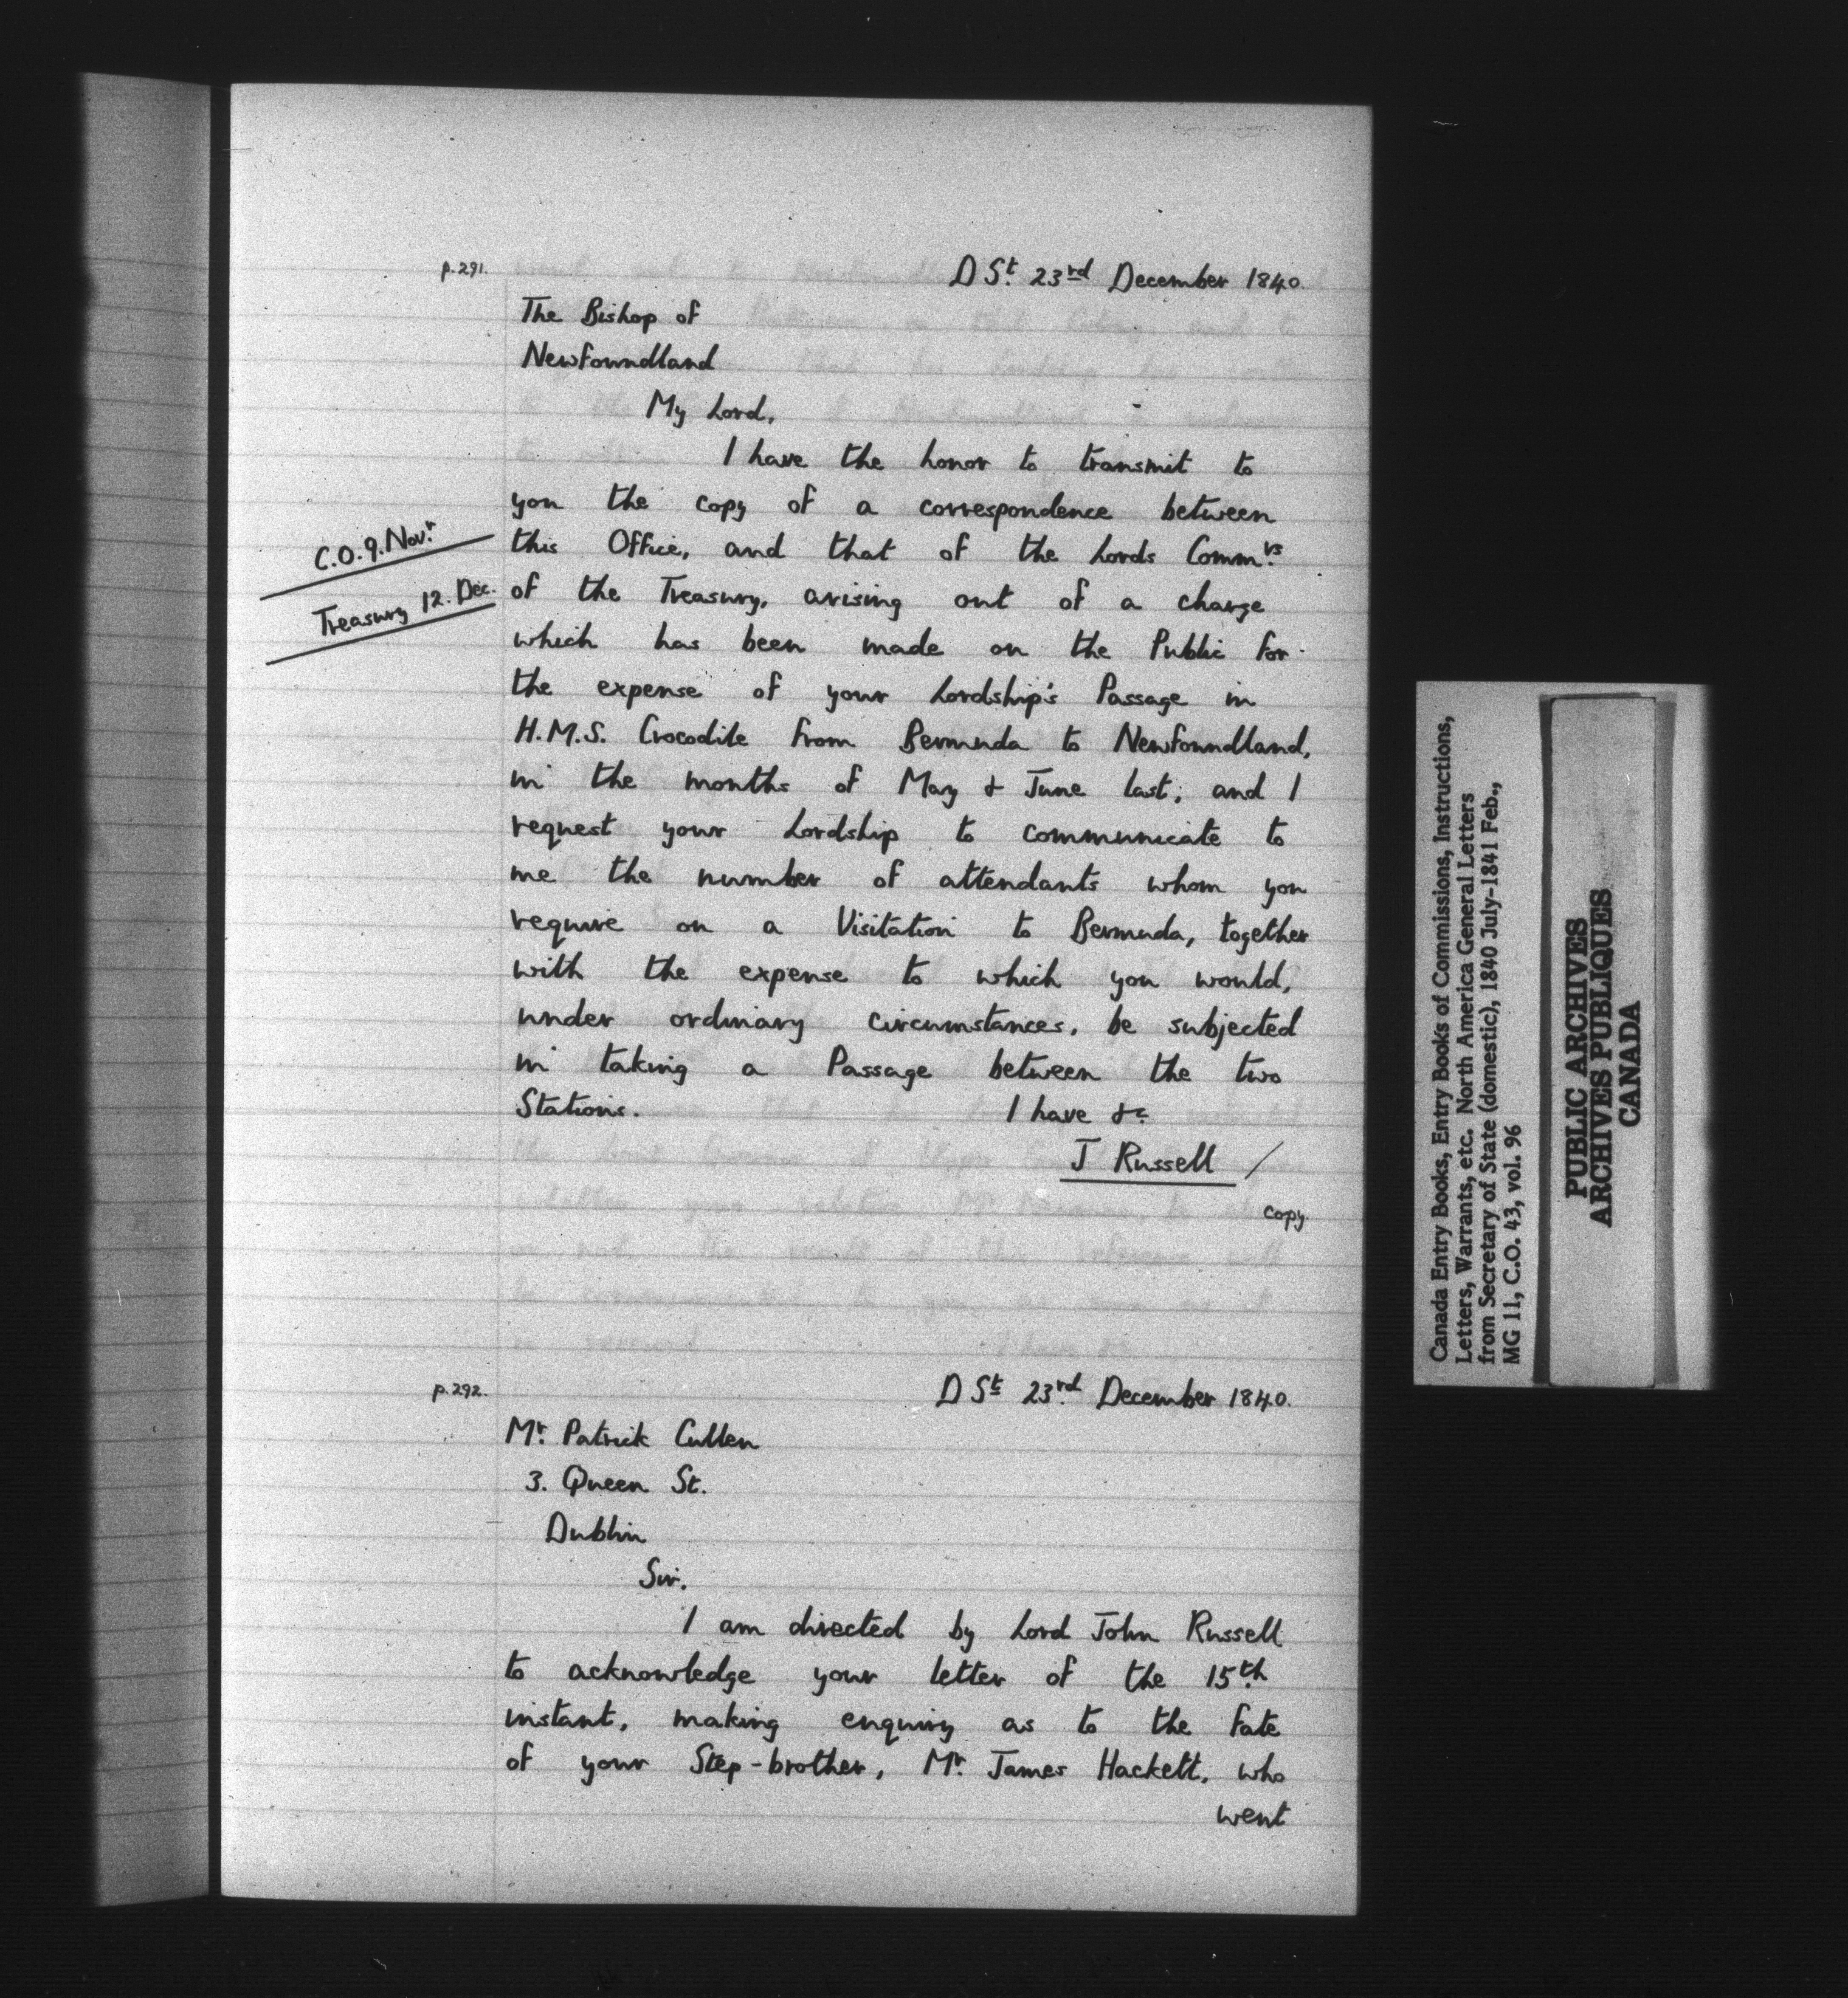 p.291.
D St. 23rd December 1840.
The Bishop of
Newfoundland
My Lord,
I have the honor to transmit to
you the copy of a correspondence between
C.O. 9. Novr.
this Office, and that of the Lords Commrs.
Treasury 12. Dec.
of the Treasury, arising out of a charge
which has been made on the Public for
the expense of your Lordship's Passage in
H.M.S. Crocodile from Bermuda to Newfoundland,
in the months of May & June last; and I
request your Lordship to communicate to
me the number of attendants whom you
require on a Visitation to Bermuda, together
with the expense to which you would,
under ordinary circumstances, be subjected
in taking a Passage between the two
Stations.
I have &c.
J Russell /
copy.
p.292.
D St 23rd. December 1840.
Mr. Patrick Cullen
3. Queen St.
Dublin
Sir.
I am directed by Lord John Russell
to acknowledge your letter of the 15th.
instant, making enquiry as to the fate
of your Step-brother, Mr. James Hackett, who
went
Canada Entry Books, Entry Books of Commissions, Instructions,
Letters, Warrants, etc. North America General Letters
from Secretary of State (domestic), 1840 July-1841 Feb.,
MG 11, C.O. 43, vol. 96
PUBLIC ARCHIVES
ARCHIVES PUBLIQUES
CANADA